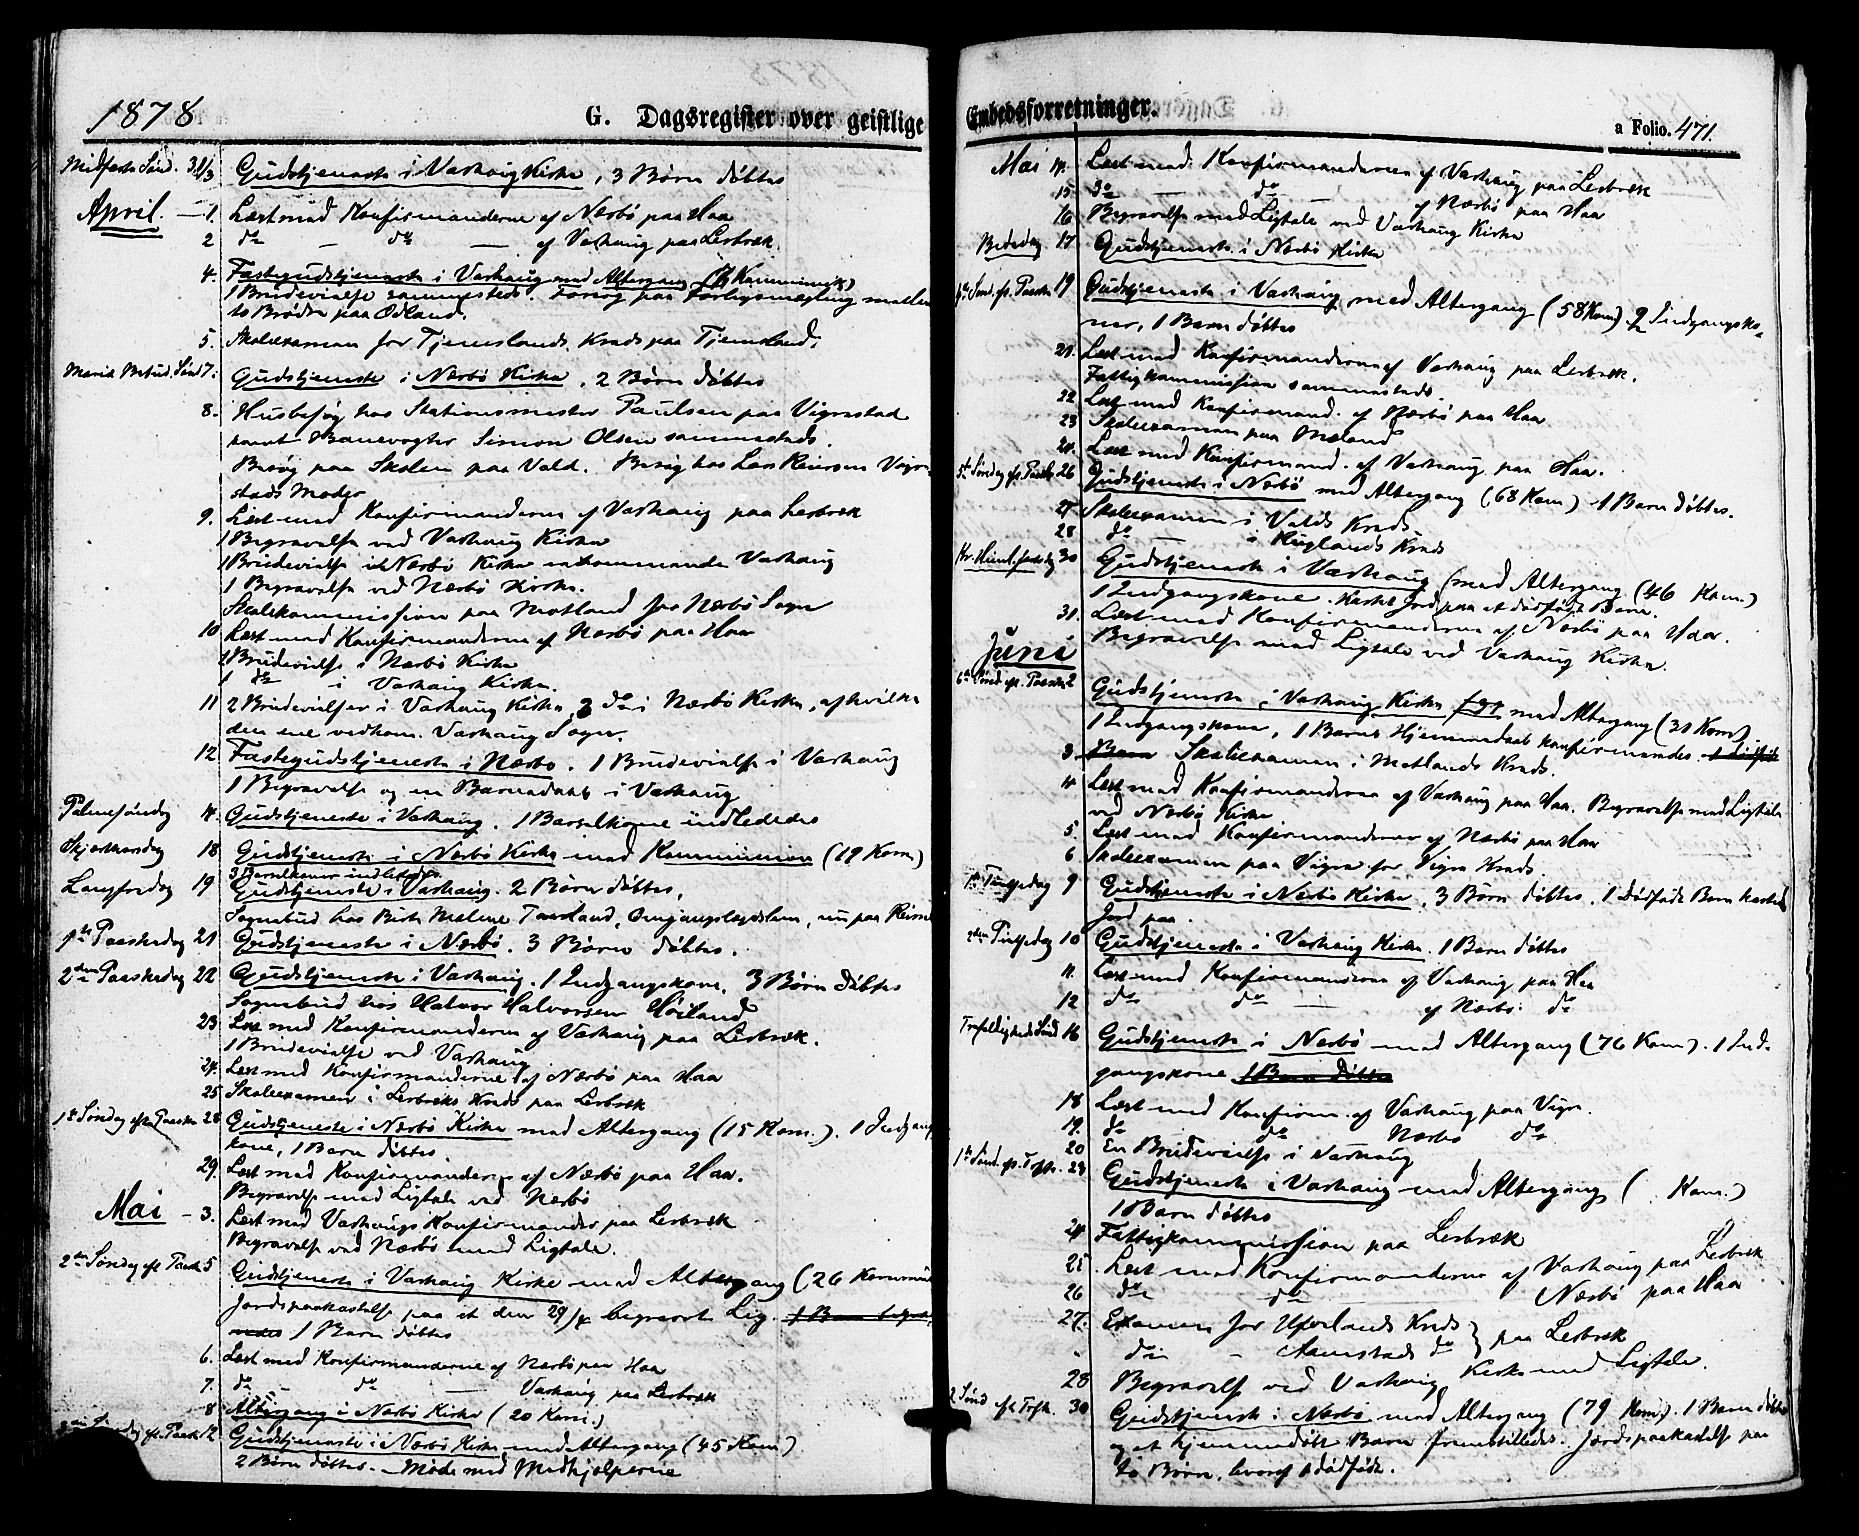 1878
G. Dagsregister over geistlige
Midfaste Sønd. 31/3 Gudstjeneste i Varhaug Kirke, 3 Børn døbtes
April. — 1. Læst med Konfirmanderne af Nærbø paa Haa
2 do — do — af Varhaug paa Lerbræk.
4. Fastegudstjeneste i Varhaug med Altergang
1 Brudevielse sammesteds. Forsøg paa Forligsmægling mellem
to Brødre paa Ødland.
5. Skoleexamen for Tjemslands Kreds paa Tjemsland.
Mariæ Bebud. Sønd 7. Gudstjeneste i Nærbø Kirke, 2 Børn døbtes
8. Husbesøg hos Stationsmester Paulsen paa Vigrestad
samt Banevogter Simon Olsen sammesteds.
Besøg paa Skolen paa Vald. Besøg hos Lars Reiersen Vigre-
stads Moder
9. Læst med Konfirmanderne af Varhaug paa Lerbræk
1 Begravelse ved Varhaug Kirke
1 Brudevielse i Nærbø Kirke vedkommende Varhaug
1 Begravelse ved Nærbø Kirke.
Skolekommission paa Motland for Nærbø Sogn
10 Læst med Konfirmanderne af Nærbø paa Haa
1 Brudevielse i Nærbø Kirke
1 do i Varhaug Kirke.
11 2 Brudevielser i Varhaug Kirke, 3 do i Nærbø Kirke, af hvilke
den ene vedkom. Varhaug Sogn.
12 Fastegudstjeneste i Nærbø. 1 Brudevielse i Varhaug
1 Begravelse og en Barnedaab i Varhaug
Palmesøndag 14. Gudstjeneste i Varhaug. 1 Barselkone indlededes
Skjærthorsdag 18 Gudstjeneste i Nærbø Kirke med Kommunion (19 Kom.)
3 Barselkoner indlededes.
Langfredag 19 Gudstjeneste i Varhaug. 2 Børn døbtes.
Sognebud hos Birte Malene Omgangslægdslem, nu paa
1ste Paaskedag 21 Gudstjeneste i Nærbø. 3 Børn døbtes.
2den Paaskedag 22 Gudstjeneste i Varhaug. 1 Indgangskone, 3 Børn døbtes
Sognebud hos Halvor Halvorsen Høiland
23. Læst med Konfirmanderne af Varhaug paa Lerbræk.
1 Brudevielse ved Varhaug
24. Læst med Konfirmanderne af Nærbø paa Haa
25 Skoleexamen i Lerbræks Kreds paa Lerbræk
1ste Søndag efter Paaske 28 Gudstjeneste i Nærbø Kirke med Altergang (15 Kom.). 1 Indgangs
kone, 1 Barn døbtes.
29. Læst med Konfirmanderne af Nærbø paa Haa.
Begravelse med Ligtale ved Nærbø
Mai — 3. Læst med Varhaugs Konfirmander paa Lerbræk
Begravelse ved Nærbø med Ligtale.
2den Søndag eft Paask 5 Gudstjeneste i Varhaug Kirke med Altergang (26
Jordspaakastelse paa et den 29/4 begravet Lig.
1 Barn døbtes
6. Læst med Konfirmanderne af Nærbø paa Haa
7. do — do — Varhaug paa Lerbræk
8 Altergang i Nærbø Kirke (20 Kom.)
eft. Paaske 12 Gudstjeneste i Nærbø Kirke med Altergang (45 Kom)
2 Børn døbtes. — Møde med Medhjælperne
Embedsforretninger.
a Folio. 471.
Mai 14. Læst med Konfirmanderne af Varhaug paa Lerbræk
15 do — do — af Nærbø paa Haa
16 Begravelse med Ligtale ved Varhaug Kirke
Bededag 17 Gudstjeneste i Nærbø Kirke
4de Sønd. ef. Paaske 19 Gudstjeneste i Varhaug med Altergang (58 Kom) 2 Indgangsko-
ner, 1 Barn døbtes
21. Læst med Konfirmanderne af Varhaug paa Lerbræk.
Fattigkommission sammesteds.
22 Læst med Konfirmand. af Nærbø paa Haa
23 Skoleexamen paa Mæland
24. Læst med Konfirmand. af Varhaug paa Haa.
5te Søndag ef. Paaske 26 Gudstjeneste i Nærbø med Altergang (68 Kom) 1 Barn døbtes.
27 Skoleexamen i Valds Kreds.
28 do — i Kuglands Kreds
Kr. Himl. fartsdag 30 Gudstjeneste i Varhaug (med Altergang (46 Kom.)
1 Indgangskone. Kastet Jord paa et dødfødt Barn.
31. Læst med Konfirmanderne af Nærbø paa Haa.
Begravelse med Ligtale ved Varhaug Kirke.
Juni
6te Sønd. ef. Paaske 2 Gudstjeneste i Varhaug Kirke med Altergang (31 Kom),
1 Indgangskone, 1 Barns Hjemmedaab konfirmeredes.
3. Barn Skoleexamen i Motlands Kreds.
4 Læst med Konfirmanderne af Varhaug paa Haa. Begravelse med Ligtale
ved Nærbø Kirke
5. Læst med Konfirmanderne af Nærbø paa Haa
6 Skoleexamen paa Vigre for Vigre Kreds.
1ste Pintsedag 9 Gudstjeneste i Nærbø Kirke, 3 Børn døbtes, 1 dødfødt Barn kastedes
Jord paa.
2den Pintsedag 10 Gudstjeneste i Varhaug Kirke. 1 Barn døbtes
11. Læst med Konfirmanderne af Varhaug paa Haa
12 do do — af Nærbø do
Trefoldigheds Sønd 16 Gudstjeneste i Nærbø med Altergang (76 Kom). 1 Ind-
gangskone 1 Barn døbtes
18 Læst med Konfirm. af Varhaug paa Vigre.
19. do do Nærbø do
20 En Brudevielse i Varhaug
1ste Sønd. ef. Trefh. 23 Gudstjeneste i Varhaug med Altergang ( Kom.)
1 Barn døbtes
24 Fattigkommission paa Lerbræk
25 Læst med Konfirmanderne af Varhaug paa Lerbræk
26 do do Nærbø paa Haa
27. Examen for Uferlands Kreds } paa Lerbræk
do — Aamestads do
28 Begravelse ved Varhaug Kirke med Ligtale.
2 Sønd eft Trefh. 30 Gudstjeneste i Nærbø med Altergang (79 Kom.). 1 Barn døbtes
og et hjemmedøbt Barn fremstilledes. Jordspaakastelse paa
to Børn, hvoraf 1 dødfødt.